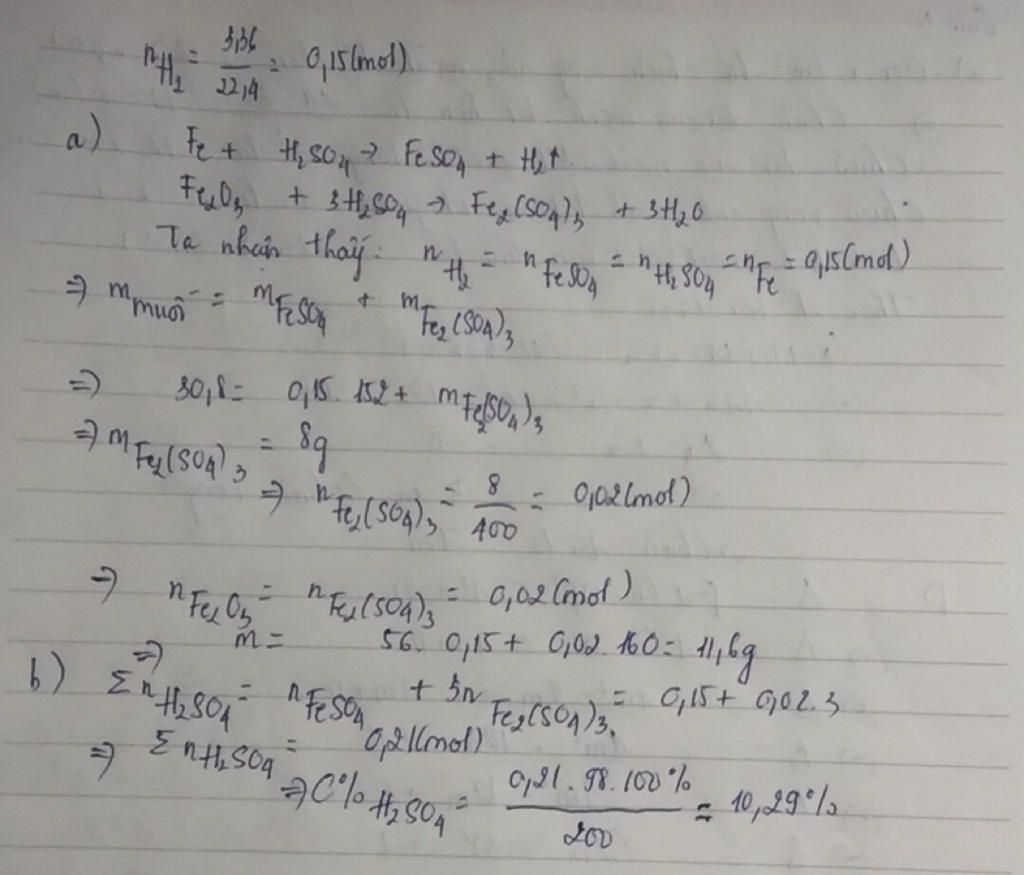 nH₂ = 3,36/22,4 = 0,15(mol)
a) Fe + H₂SO₄ → FeSO₄ + H₂↑
Fe₂O₃ + 3H₂SO₄ → Fe₂(SO₄)₃ + 3H₂O
Ta nhận thấy: nH₂ = nFeSO₄ = nH₂SO₄ = nFe = 0,15(mol)
⇒ mmuối = mFeSO₄ + mFe₂(SO₄)₃
⇒ 30,8 = 0,15. 152 + mFe₂(SO₄)₃
⇒ mFe₂(SO₄)₃ = 8g
⇒ nFe₂(SO₄)₃ = 8/400 = 0,02(mol)
⇒ nFe₂O₃ = nFe₂(SO₄)₃ = 0,02(mol)
⇒ m = 56. 0,15 + 0,02. 160 = 11,6g
b) ΣnH₂SO₄ = nFeSO₄ + 3nFe₂(SO₄)₃ = 0,15 + 0,02.3
⇒ ΣnH₂SO₄ = 0,21(mol)
⇒ C%H₂SO₄ = 0,21. 98. 100%/200 = 10,29%